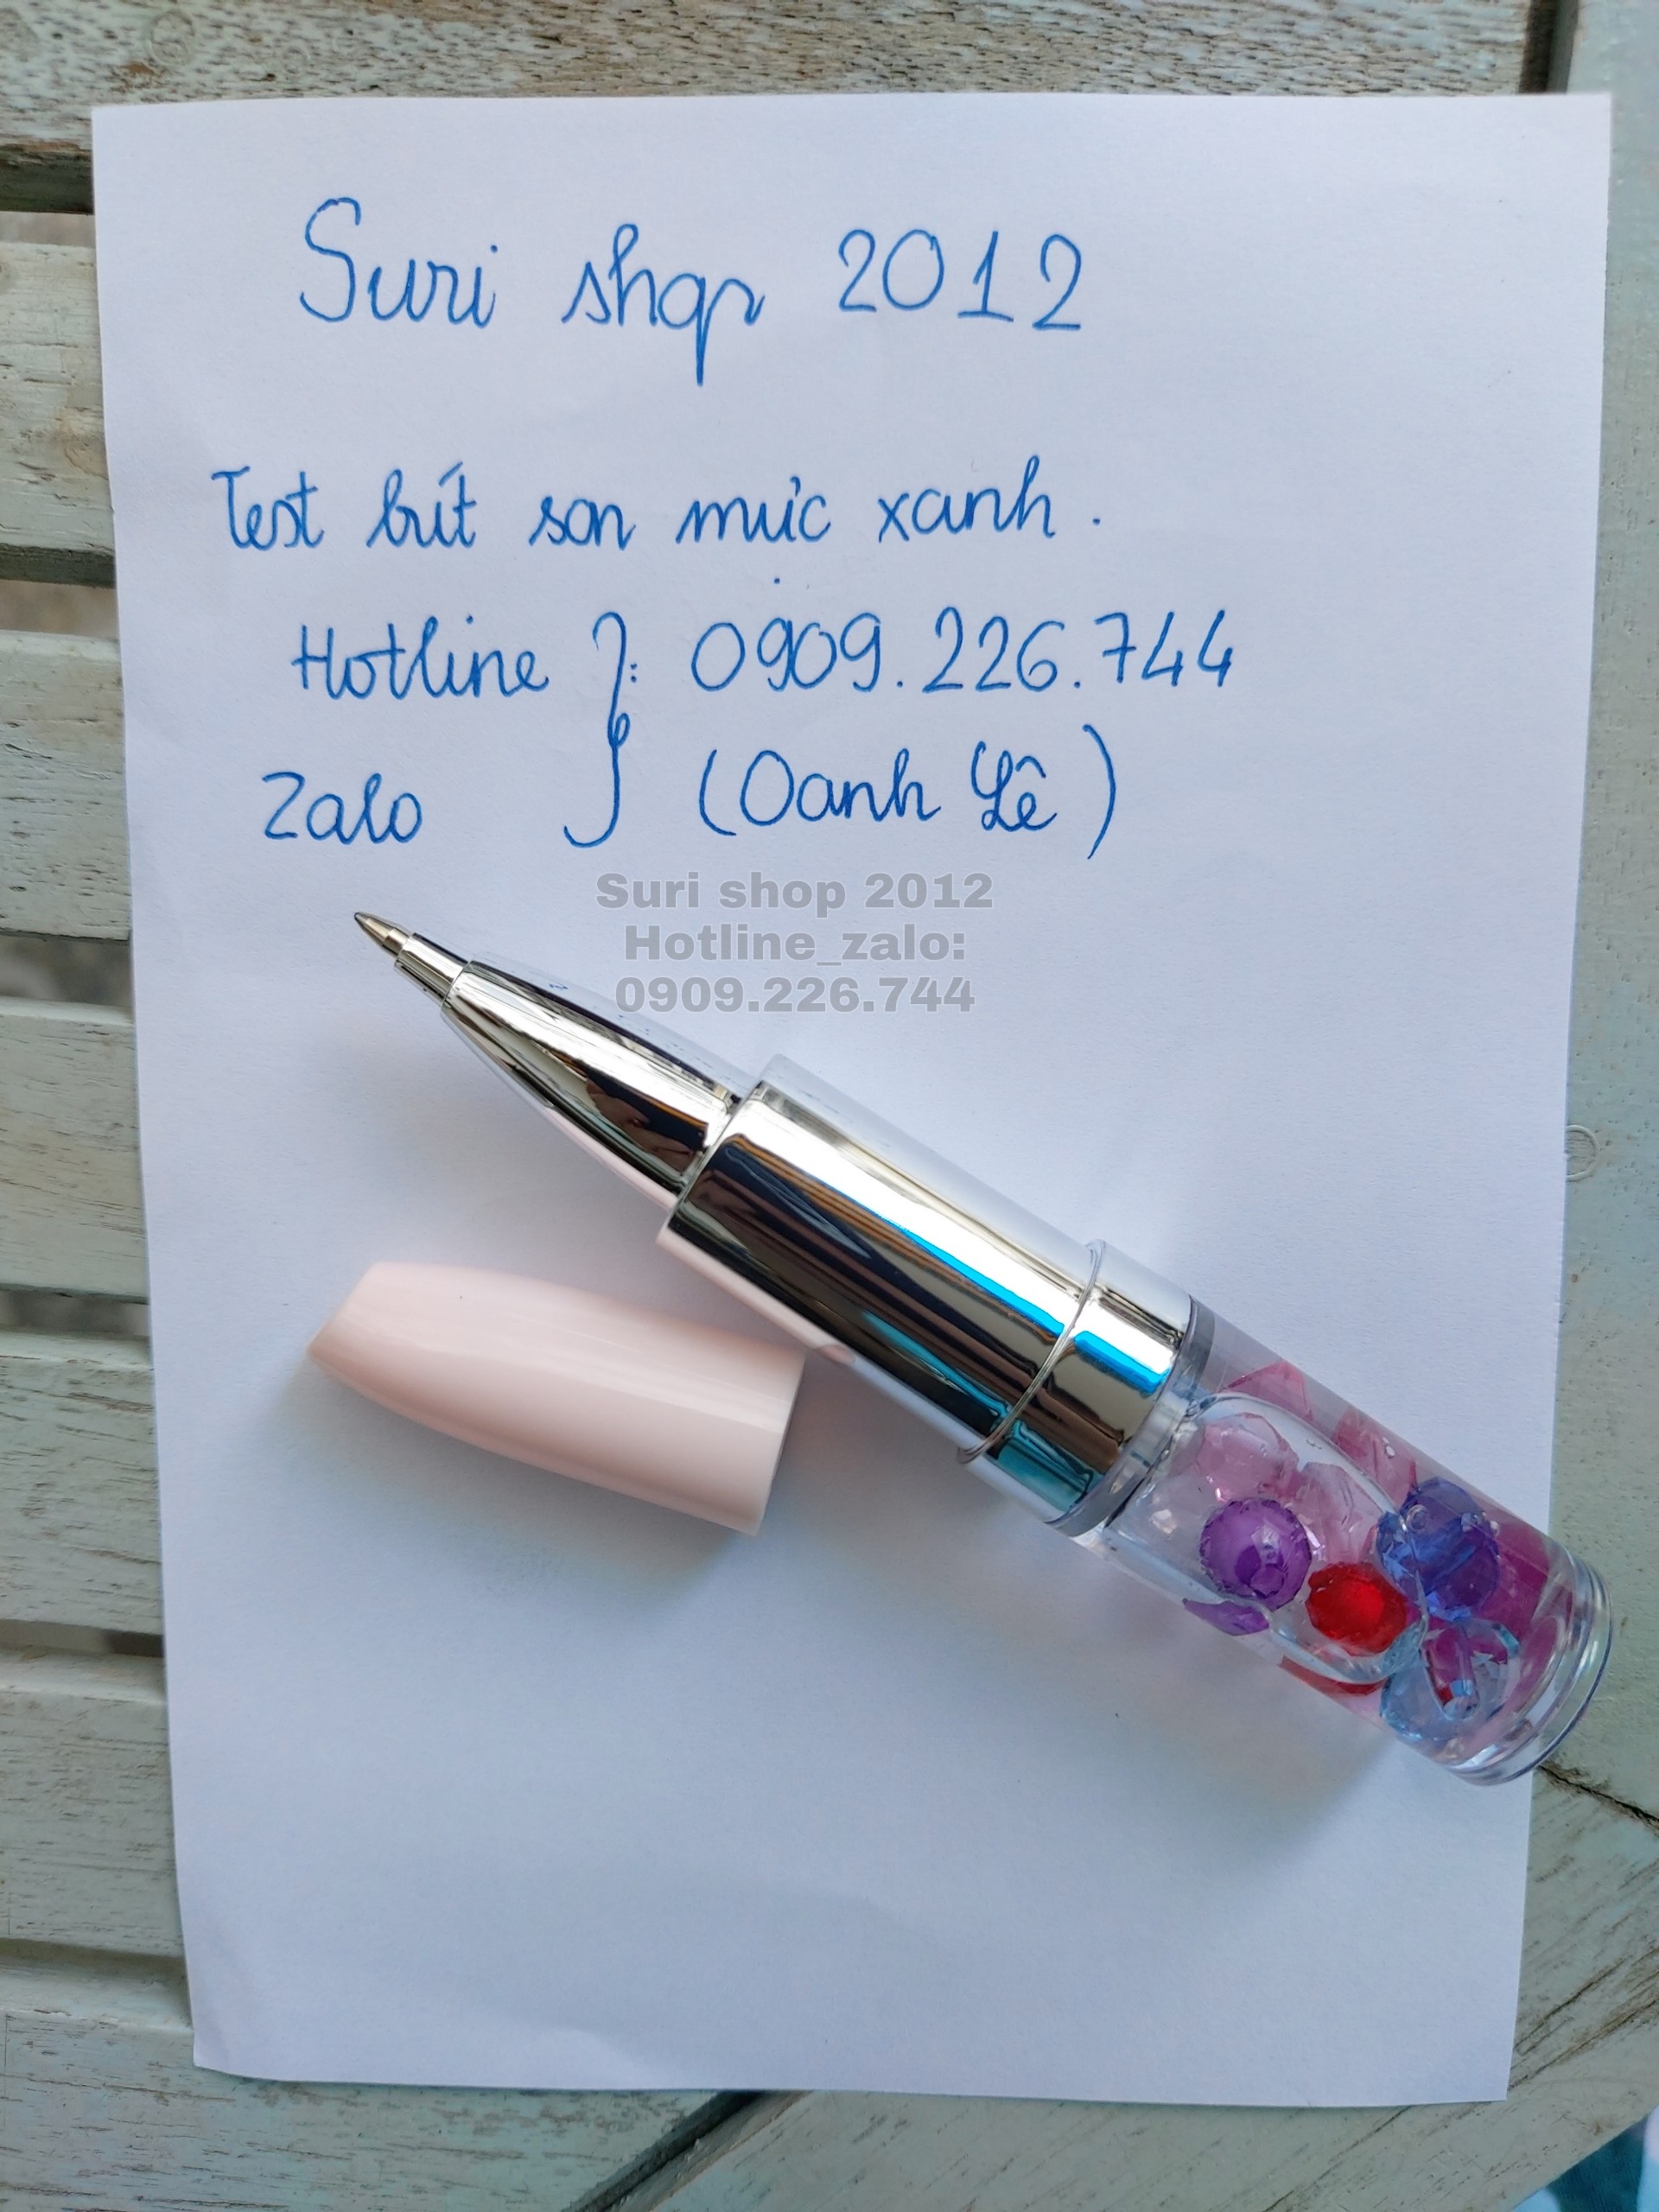 Suri shop 2012
Test bút son mực xanh.
Hotline }: 0909.226.744
Zalo (Oanh Lê)
Suri shop 2012
Hotline_zalo:
0909.226.744